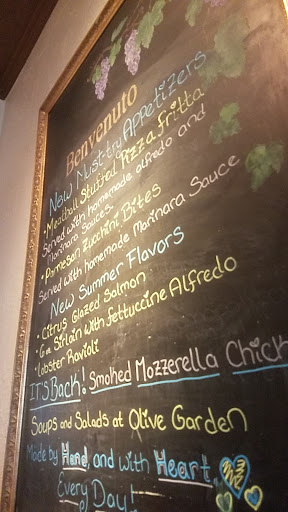 Benvenuto
New Must-try Appetizers
• Meatball Stuffed Pizza fritta
Served with homemade alfredo and
Marinara Sauces
• Parmesan Zucchini Bites
Served with homemade Marinara Sauce
New Summer Flavors
• Citrus Glazed Salmon
• 6oz Sirloin with fettuccine Alfredo
• Lobster Ravioli
ITS Back! Smoked Mozzerella Chick
Soups and Salads at Olive Garden
Made by Hand, and with Heart
Every Day!